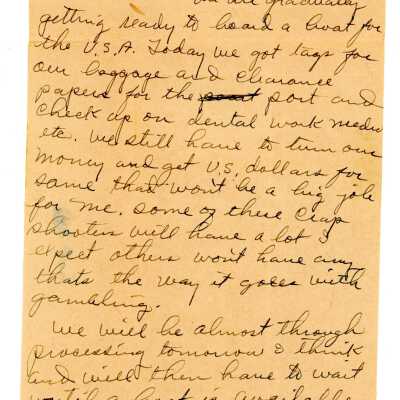 we are gradually
getting ready to board a boat for
the U.S.A. Today we got tags for
our baggage and clearance
papers for the port and
check up on dental work medic
etc. We still have to turn our
money and get U.S. dollars for
same that won't be a big job
for me. some of these Crap
shooters will have a lot I
expect others won't have any
thats the way it goes with
gambling.
We will be almost through
processing tomorrow I think
and will then have to wait
until a boat is available